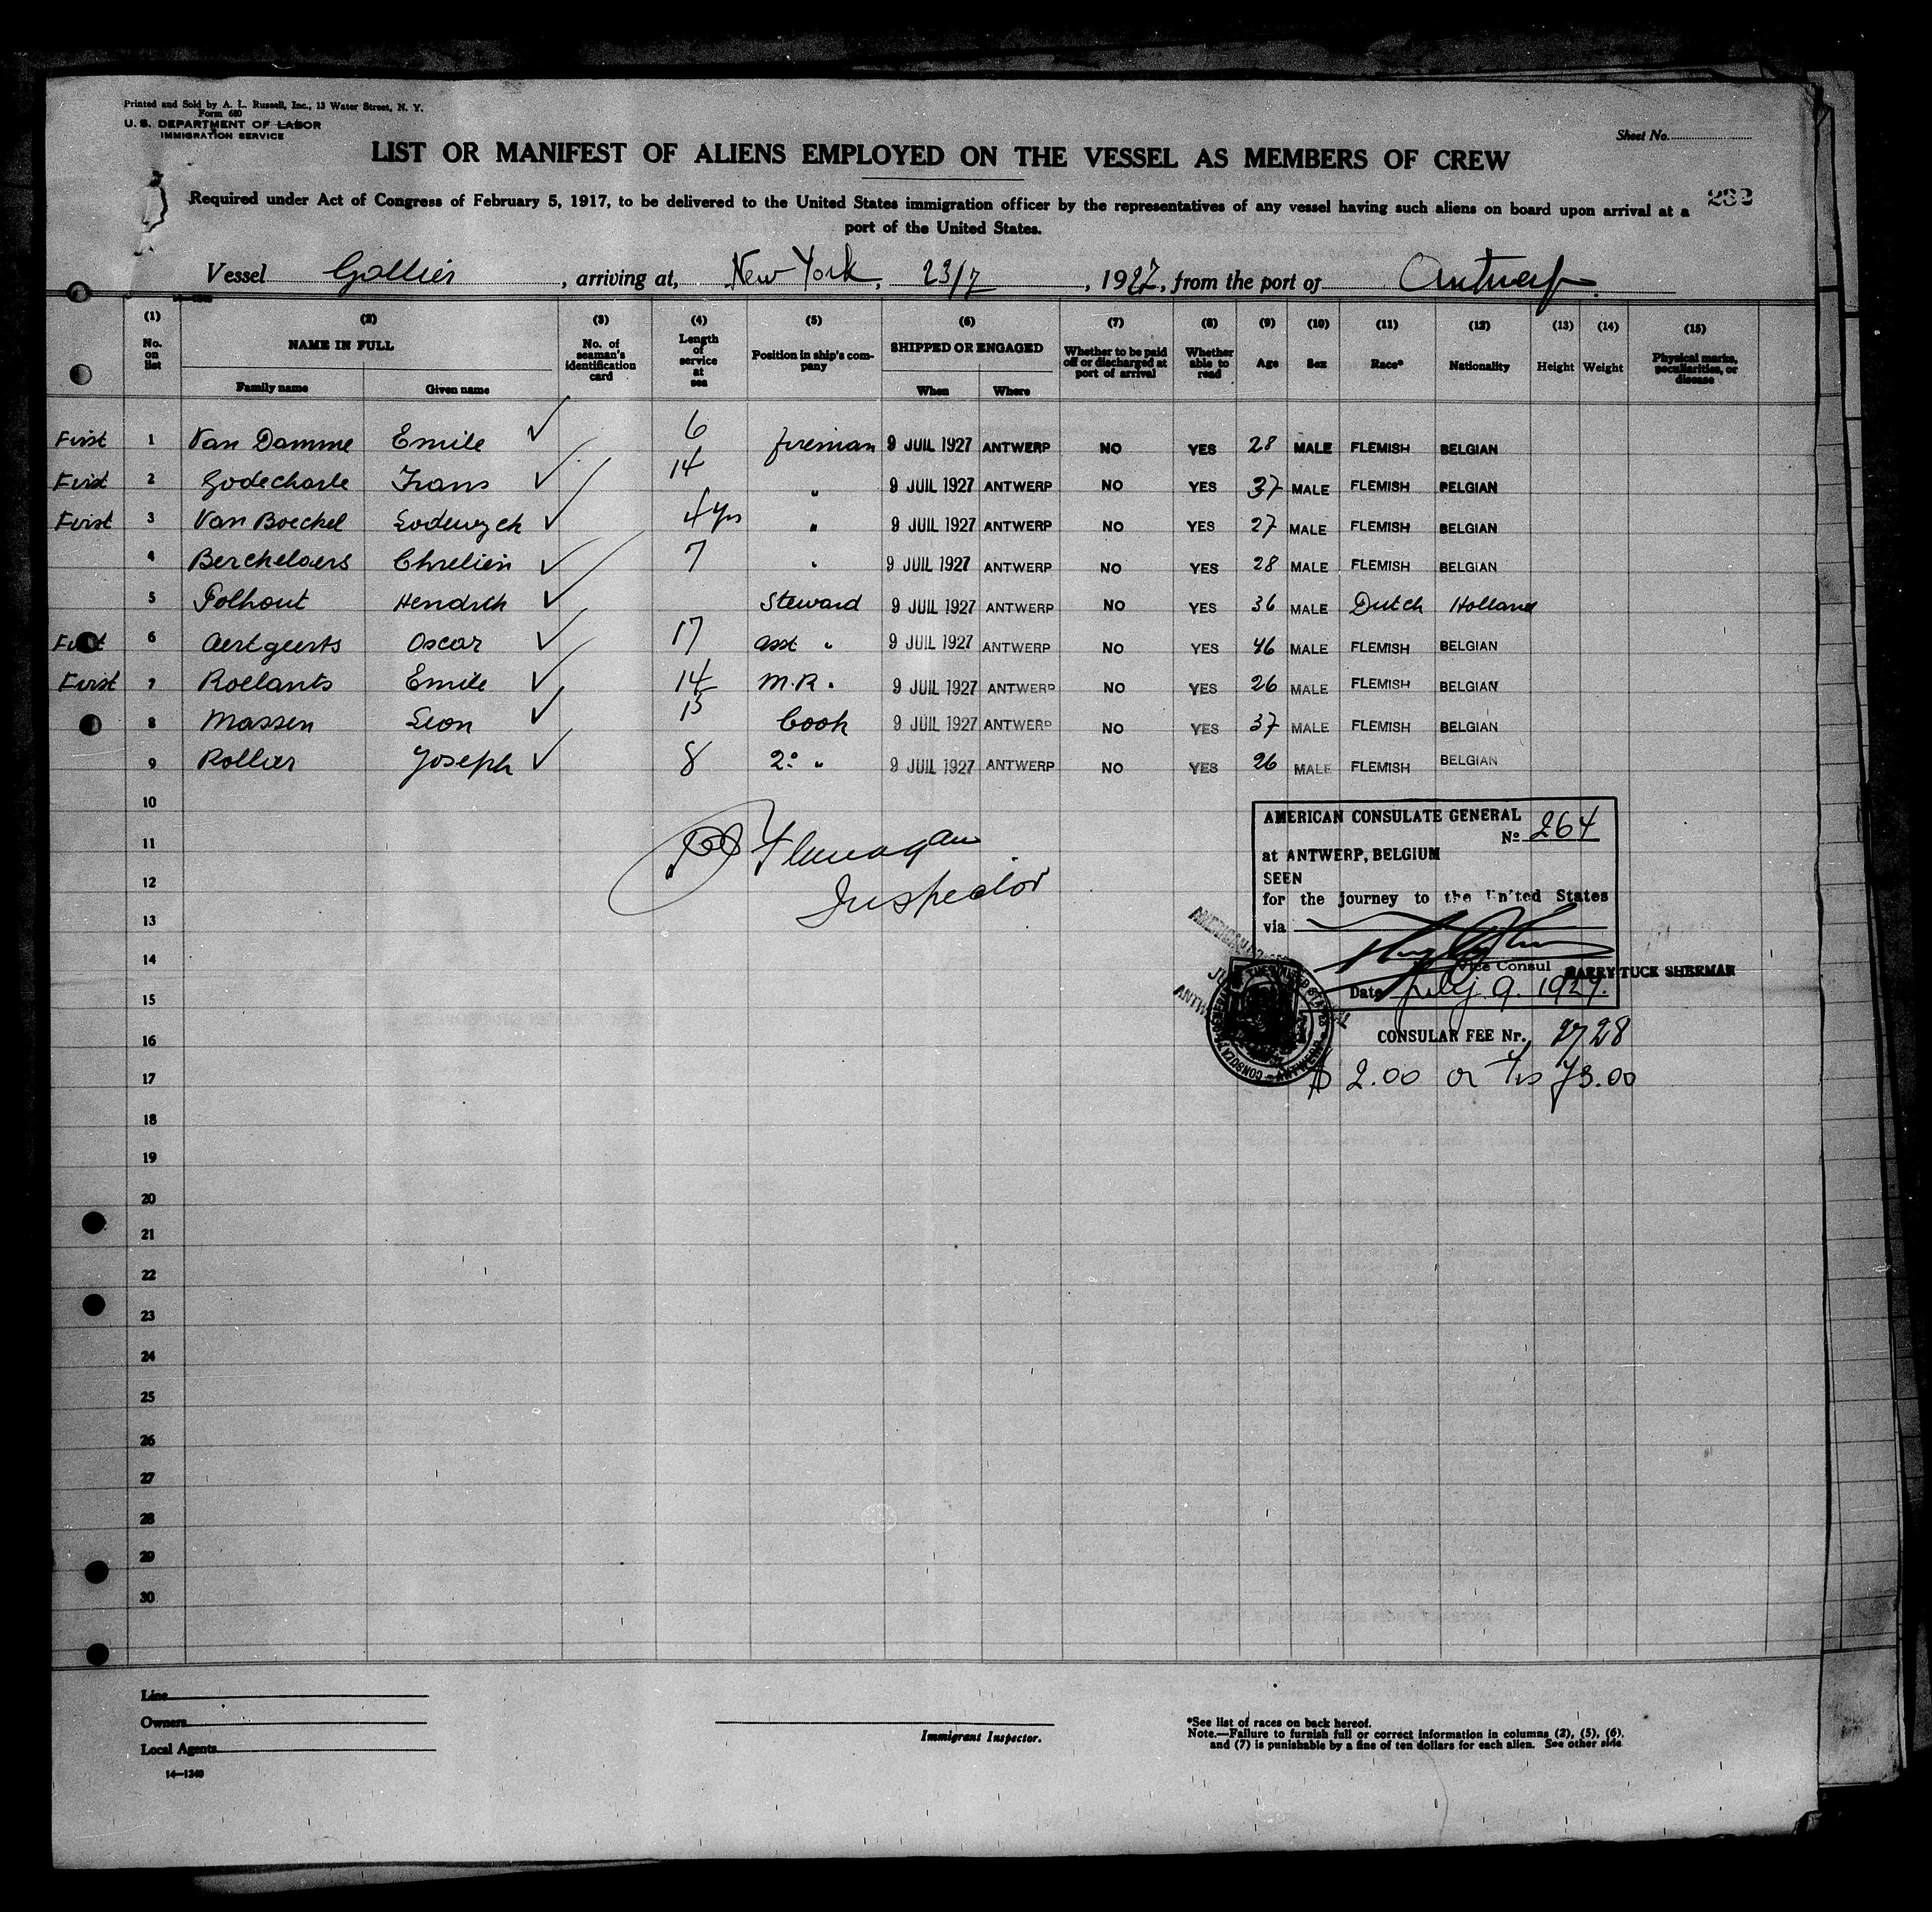 Printed and Sold by A. L. Russell, Inc., 13 Water Street, N. Y.
Form 680
U. S. DEPARTMENT OF LABOR
IMMIGRATION SERVICE
Sheet No.
LIST OR MANIFEST OF ALIENS EMPLOYED ON THE VESSEL AS MEMBERS OF CREW
Required under Act of Congress of February 5, 1917, to be delivered to the United States immigration officer by the representatives of any vessel having such aliens on board upon arrival at a
port of the United States.
232
Vessel Gallier, arriving at, New York, 23/7, 1927, from the port of Antwerp.
(1) (2) (3) (4) (5) (6) (7) (8) (9) (10) (11) (12) (13) (14) (15)
No. on list NAME IN FULL No. of seaman's identification card Length of service at sea Position in ship's company SHIPPED OR ENGAGED Whether to be paid off or discharged at port of arrival Whether able to read Age Sex Race* Nationality Height Weight Physical marks, peculiarities, or disease
Family name Given name When Where
First 1 Van Damme Emile ✓ 6 fireman 9 JUIL 1927 ANTWERP NO YES 28 MALE FLEMISH BELGIAN
First 2 Godecharle Frans ✓ 14 " 9 JUIL 1927 ANTWERP NO YES 37 MALE FLEMISH BELGIAN
First 3 Van Boeckel Lodewyck ✓ 4 yrs " 9 JUIL 1927 ANTWERP NO YES 27 MALE FLEMISH BELGIAN
4 Berchelaers Chretien ✓ 7 " 9 JUIL 1927 ANTWERP NO YES 28 MALE FLEMISH BELGIAN
5 Polhout Hendrik ✓ Steward 9 JUIL 1927 ANTWERP NO YES 36 MALE Dutch Holland
First 6 Aertgeerts Oscar ✓ 17 asst " 9 JUIL 1927 ANTWERP NO YES 46 MALE FLEMISH BELGIAN
First 7 Roelants Emile ✓ 14 M.R. " 9 JUIL 1927 ANTWERP NO YES 26 MALE FLEMISH BELGIAN
8 Massen Leon ✓ 15 Cook 9 JUIL 1927 ANTWERP NO YES 37 MALE FLEMISH BELGIAN
9 Rollier Joseph ✓ 8 2° " 9 JUIL 1927 ANTWERP NO YES 26 MALE FLEMISH BELGIAN
10
11
12
13
14
15
16
17
18
19
20
21
22
23
24
25
26
27
28
29
30
Flanagan
Inspector
AMERICAN CONSULATE GENERAL
No 264
at ANTWERP, BELGIUM
SEEN
for the journey to the United States
via
Vice Consul HARRY TUCK SHERMAN
Date July 9. 1927.
CONSULAR FEE Nr. 2728
$ 2.00 or Frs 73.00
Line
Owners
Local Agents
14—1240
Immigrant Inspector.
*See list of races on back hereof.
Note.—Failure to furnish full or correct information in columns (2), (5), (6),
and (7) is punishable by a fine of ten dollars for each alien. See other side